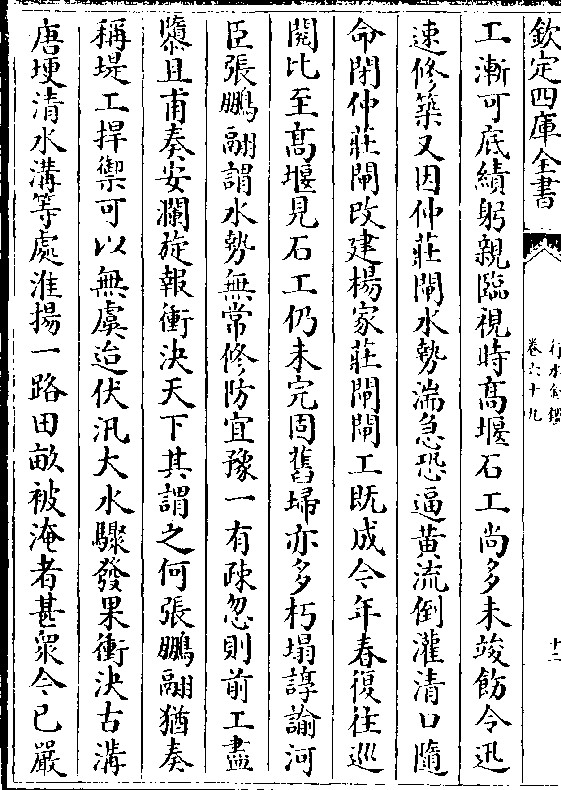 欽定四庫全書
行水金鑑
卷六十九
十二
工漸可底績躬親臨視時髙堰石工尚多未竣飭令迅
速修築又因仲莊閘水勢湍急恐逼黄流倒灌清口隨
命閉仲莊閘改建楊家莊閘閘工既成今年春復往巡
閱比至髙堰見石工仍未完固舊埽亦多朽塌諄諭河
臣張鵬翮謂水勢無常修防宜豫一有疎忽則前工盡
隳且甫奏安瀾旋報衝決天下其謂之何張鵬翮猶奏
稱堤工捍禦可以無虞迨伏汛大水驟發果衝決古溝
唐埂清水溝等處淮揚一路田畝被淹者甚衆今已嚴